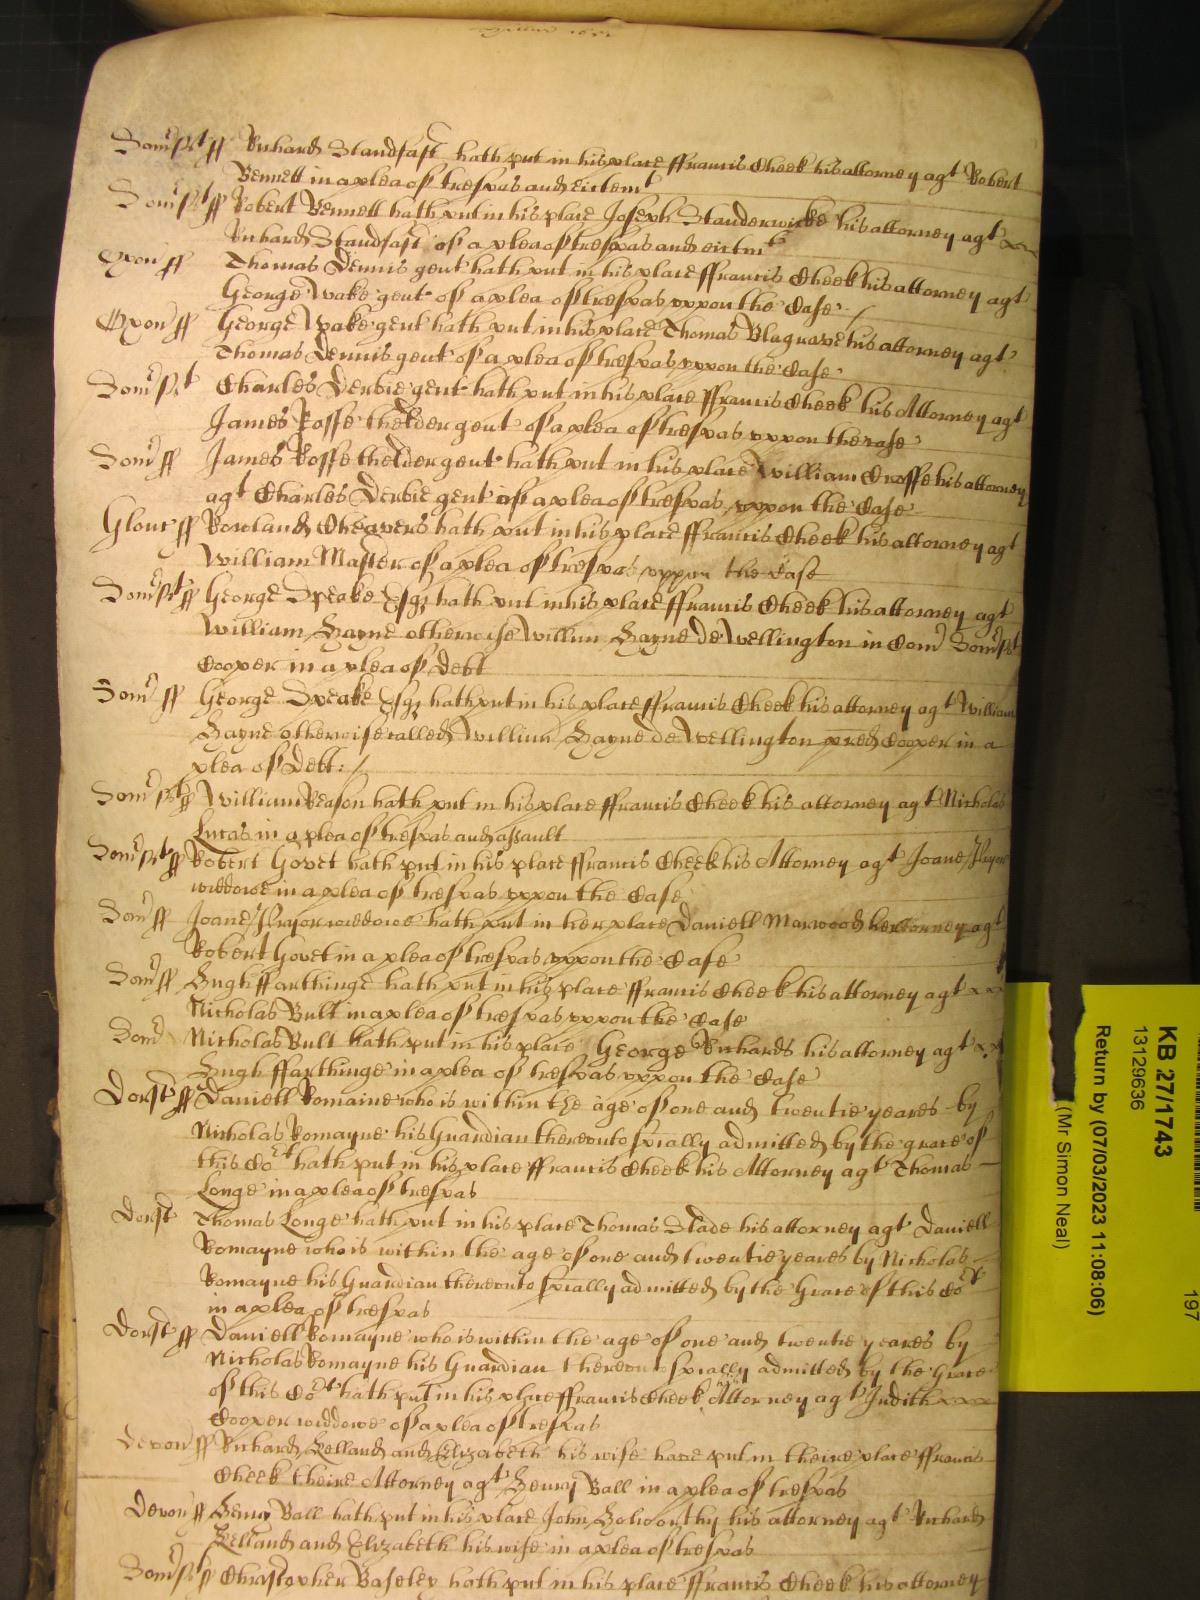 1651
Som̃set ff Richard Standfast hath put in his place ffrancis Cheek his attorney agt Robert
Bennett in a plea of trespas and eiectemt
Som̃set ff Robert Bennett hath put in his place Joseph Standerwicke his attorney agt
Richard Standfast of a plea of trespas and eiectmt
Oxon ff Thomas Dennis gent hath put in his place ffrancis Cheek his attorney agt
George Wake gent of a plea of trespas vppon the Case
Oxon ff George Wake gent hath put in his place Thomas Blagrave his attorney agt
Thomas Dennis gent of a plea of trespas vppon the Case
Som̃set Charles Derbie gent hath put in his place ffrancis Cheek his Attorney agt
James Rosse thelder gent of a plea of trespas vppon the case
Som̃ ff James Rosse thelder gent hath put in his place William his attorney
agt Charles Derbie gent of a plea of trespas vppon the Case
Glouc ff Rowland Cheavers hath put in his place ffrancis Cheek his attorney agt
William Master of a plea of trespas vppon the Case
Som̃set ff George Speake Esq hath put in his place ffrancis Cheek his attorney agt
William Hayne otherwise Willim Hayne de Wellington in Com̃ Som̃set
Cooper in a plea of Debt
Som̃ ff George Speake Esq hath put in his place ffrancis Cheek his attorney agt William
Hayne otherwise called Willim Hayne de Wellington pred Cooper in a
plea of Debt:
Som̃set ff William Reason hath put in his place ffrancis Cheek his attorney agt Nicholas
Lucas in a plea of trespas and assault
Som̃set ff Robert Govet hath put in his place ffrancis Cheek his Attorney agt Joane Pryor
widdowe in a plea of trespas vppon the Case
Som̃ ff Joane Pryor widdowe hath put in her place Daniell Marwood her attorney agt
Robert Govet in a plea of trespas vppon the Case
Som̃ ff Hugh ffarthinge hath put in his place ffrancis Cheek his attorney agt
Nicholas Bult in a plea of trespas vppon the Case
Som̃ Nicholas Bult hath put in his place George Richards his attorney agt
Hugh ffarthinge in a plea of trespas vppon the Case
Dorst ff Daniell Romaine who is within the age of one and twentie yeares by
Nicholas Romayne his Guardian thereunto sp̃ially admitted by the grace of
this Cot hath put in his place ffrancis Cheek his Attorney agt Thomas
Longe in a plea of trespas
Dorst Thomas Longe hath put in his place Thomas Slade his attorney agt Daniell
Romayne who is within the age of one and twentie yeares by Nicholas
Romayne his Guardian thereunto sp̃ially admitted by the Grace of this Cot
in a plea of trespas
Dorst ff Daniell Romayne who is within the age of one and twentie yeares by
Nicholas Romayne his Guardian thereunto sp̃ially admitted by the Grace
of this Cot hath put in his place ffrancis Cheek his Attorney agt Judith
Cooper widdowe of a plea of trespas
Devon ff Richard Helland and Elizabeth his wife have put in theire place ffrancis
Cheek theire Attorney agt Henry Ball in a plea of trespas
Devon ff Henry Ball hath put in his place John Holworthy his attorney agt Richard
Helland and Elizabeth his wife in a plea of trespas
Som̃set ff Christopher Baseley hath put in his place ffrancis Cheek his attorney
KB 27/1743
13129636
Return by (07/03/2023 11:08:06)
(Mr Simon Neal)
197